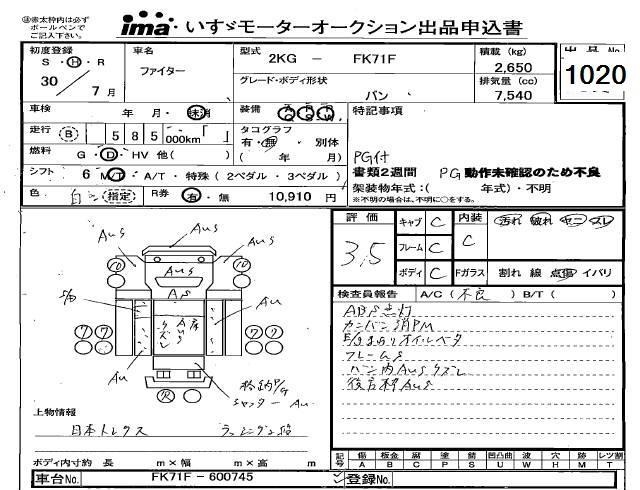 赤太枠内は必ず
ボールペンで
ご記入下さい。
ima いすゞモーターオークション出品申込書
初度登録 車名 型式 2KG - FK71F 積載 (kg) 出品No
S・H・R ファイター グレード・ボディ形状 2,650 1020
30 / 7月 バン 排気量 (cc)
7,540
車検 年・月・抹消 装備 A P P 特記事項
走行 B 585,000km「 」 タコグラフ
有・無・別体
燃料 G・D・HV 他( ) ( 年 月) PG付
シフト 6 M/T・A/T・特殊 (2ペダル・3ペダル) 書類2週間 PG動作未確認のため不良
色 白 指定 R券 有・無 10,910 円 架装物年式:( 年式)・不明
※不明の場合は、不明に○をする。
評価 キャブ C 内装 汚れ 破れ ヤニ スレ
3.5 フレーム C C
ボディ C Fガラス 割れ 線 点傷 イバリ
検査員報告 A/C ( 不良 ) B/T ( )
ABS点灯
カンバン消PM
オイルベタ
フレームS
バン内AUS
AUS
AUS AUS AUS
10 AUS 10
A/S
S/D AU
7 7 7 7
AU
P/G
シャッター AU
上物情報
日本トレクス ラッシング2段
ボディ内寸約 長 m×幅 m×高 m
記号 傷 板金 腐 塗 錆 凹凸曲 波 穴 跡 レツ割
A B C P S U W H M T
車台No. FK71F-600745 登録No.